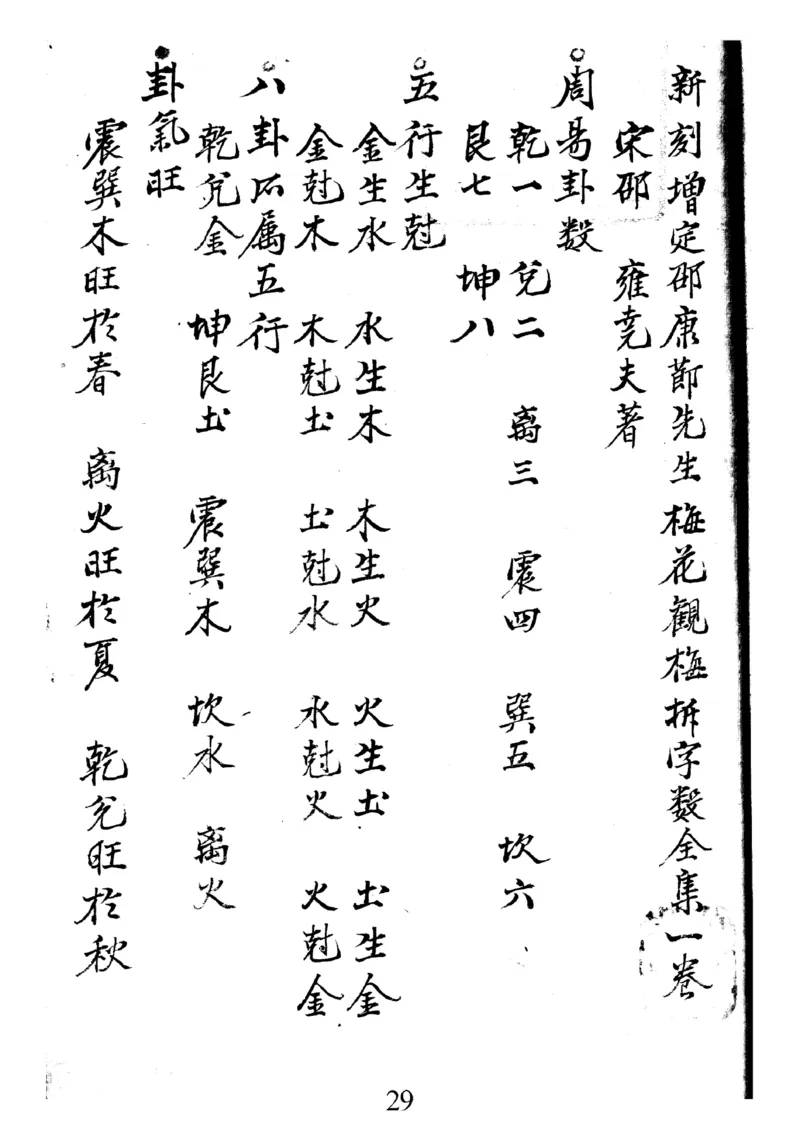 新刻增定邵康節先生梅花觀梅拆字数全集一卷
宋邵 雍尭夫著
周易卦数
乾一 兊二 离三 震四 巽五 坎六
艮七 坤八
五行生尅
金生水 水生木 木生火 火生土 土生金
金尅木 木尅土 土尅水 水尅火 火尅金
八卦所属五行
乾兊金 坤艮土 震巽木 坎水 离火
卦氣旺
震巽木旺於春 离火旺於夏 乾兊旺於秋
29